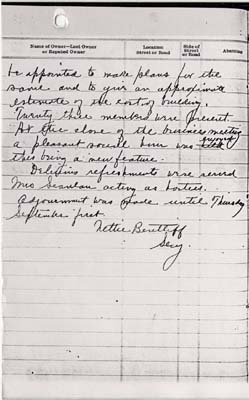 Name of Owner—Last Owner or Reputed Owner
Location Street or Road
Side of Street or Road
Abutting
be appointed to make plans for the
same and to give an approximate
estimate of the cost of building.
Twenty three members were present.
At the close of the business meeting
a pleasant social hour was spent
this being a new feature.
Delicious refreshments were served
Mrs Scanlan acting as hostess.
Adjournment was made until Thursday
September first.
Nettie
Secy.